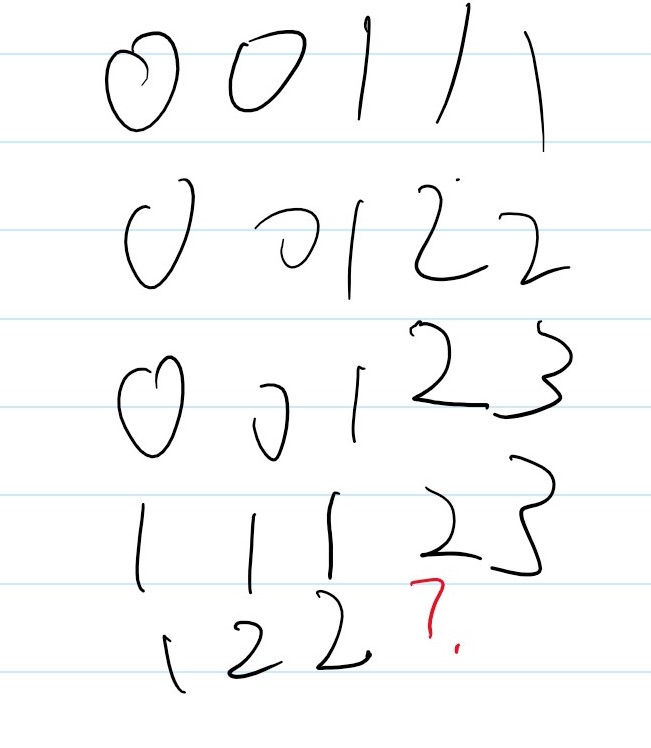 0 0 1 1 1
0 0 1 2 2
0 0 1 2 3
1 1 1 2 3
1 2 2 ?